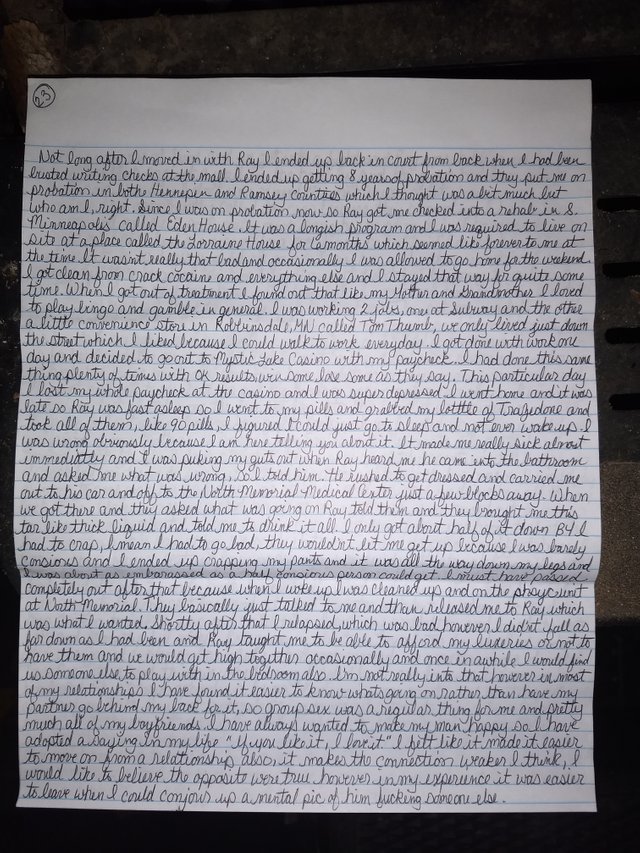 23
Not long after I moved in with Ray I ended up back in court from back when I had been
busted writing checks at the mall. I ended up getting 8 years of probation and they put me on
probation in both Hennepin and Ramsey Counties which I thought was a bit much but
who am I, right. Since I was on probation now so Ray got me checked into a rehab in S.
Minneapolis called Eden House. It was a longish program and I was required to live on
site at a place called the Lorraine House for 6 months which seemed like forever to me at
the time It wasn't really that bad and occasionally I was allowed to go home for the weekend.
I got clean from crack cocaine and everything else and I stayed that way for quite some
time. When I got out of treatment I found out that like my Mother and Grandmother I loved
to play bingo and gamble in general. I was working 2 jobs, one at Subway and the other
a little convenience store in Robbinsdale, MN called Tom Thumb, we only lived just down
the street which I liked because I could walk to work everyday. I got done with work one
day and decided to go out to Mystic Lake Casino with my paycheck. I had done this same
thing plenty of times with OK results, win some lose some as they say. This particular day
I lost my whole paycheck at the casino and I was super depressed. I went home and it was
late so Ray was fast asleep so I went to my pills and grabbed my bottle of Trazedone and
took all of them, like 90 pills, I figured I could just go to sleep and not ever wake up. I
was wrong obviously because I am here telling you about it. It made me really sick almost
immediatly and I was puking my guts out when Ray heard me he came into the bathroom
and asked me what was wrong, so I told him. He rushed to get dressed and carried me
out to his car and off to the North Memorial Medical Center just a few blocks away. When
we got there and they asked what was going on Ray told them and they brought me this
tar like thick liquid and told me to drink it all. I only got about half of it down B4 I
had to crap, I mean I had to go bad, they wouldn't let me get up because I was barely
consious and I ended up crapping my pants and it was all the way down my legs and
I was about as embarassed as a half consious person could get. I must have passed
completely out after that because when I woke up I was cleaned up and on the phsyc unit
at North Memorial. They basically just talked to me and than released me to Ray which
was what I wanted. Shortly after that I relapsed, which was bad however I didn't fall as
far down as I had been and Ray taught me to be able to afford my luxeries or not to
have them and we would get high together occasionally and once in awhile I would find
us someone else to play with in the bedroom also. I'm not really into that however in most
of my relationships I have found it easier to know whats going on rather than have my
partner go behind my back for it, so group sex was a regular thing for me and pretty
much all of my boyfriends. I have always wanted to make my man happy so I have
adopted a saying in my life "If you like it, I love it" I felt like it made it easier
to move on from a relationship also, it makes the connection weaker I think, I
would like to believe the opposite were true however in my experience it was easier
to leave when I could conjour up a mental pic of him fucking someone else.